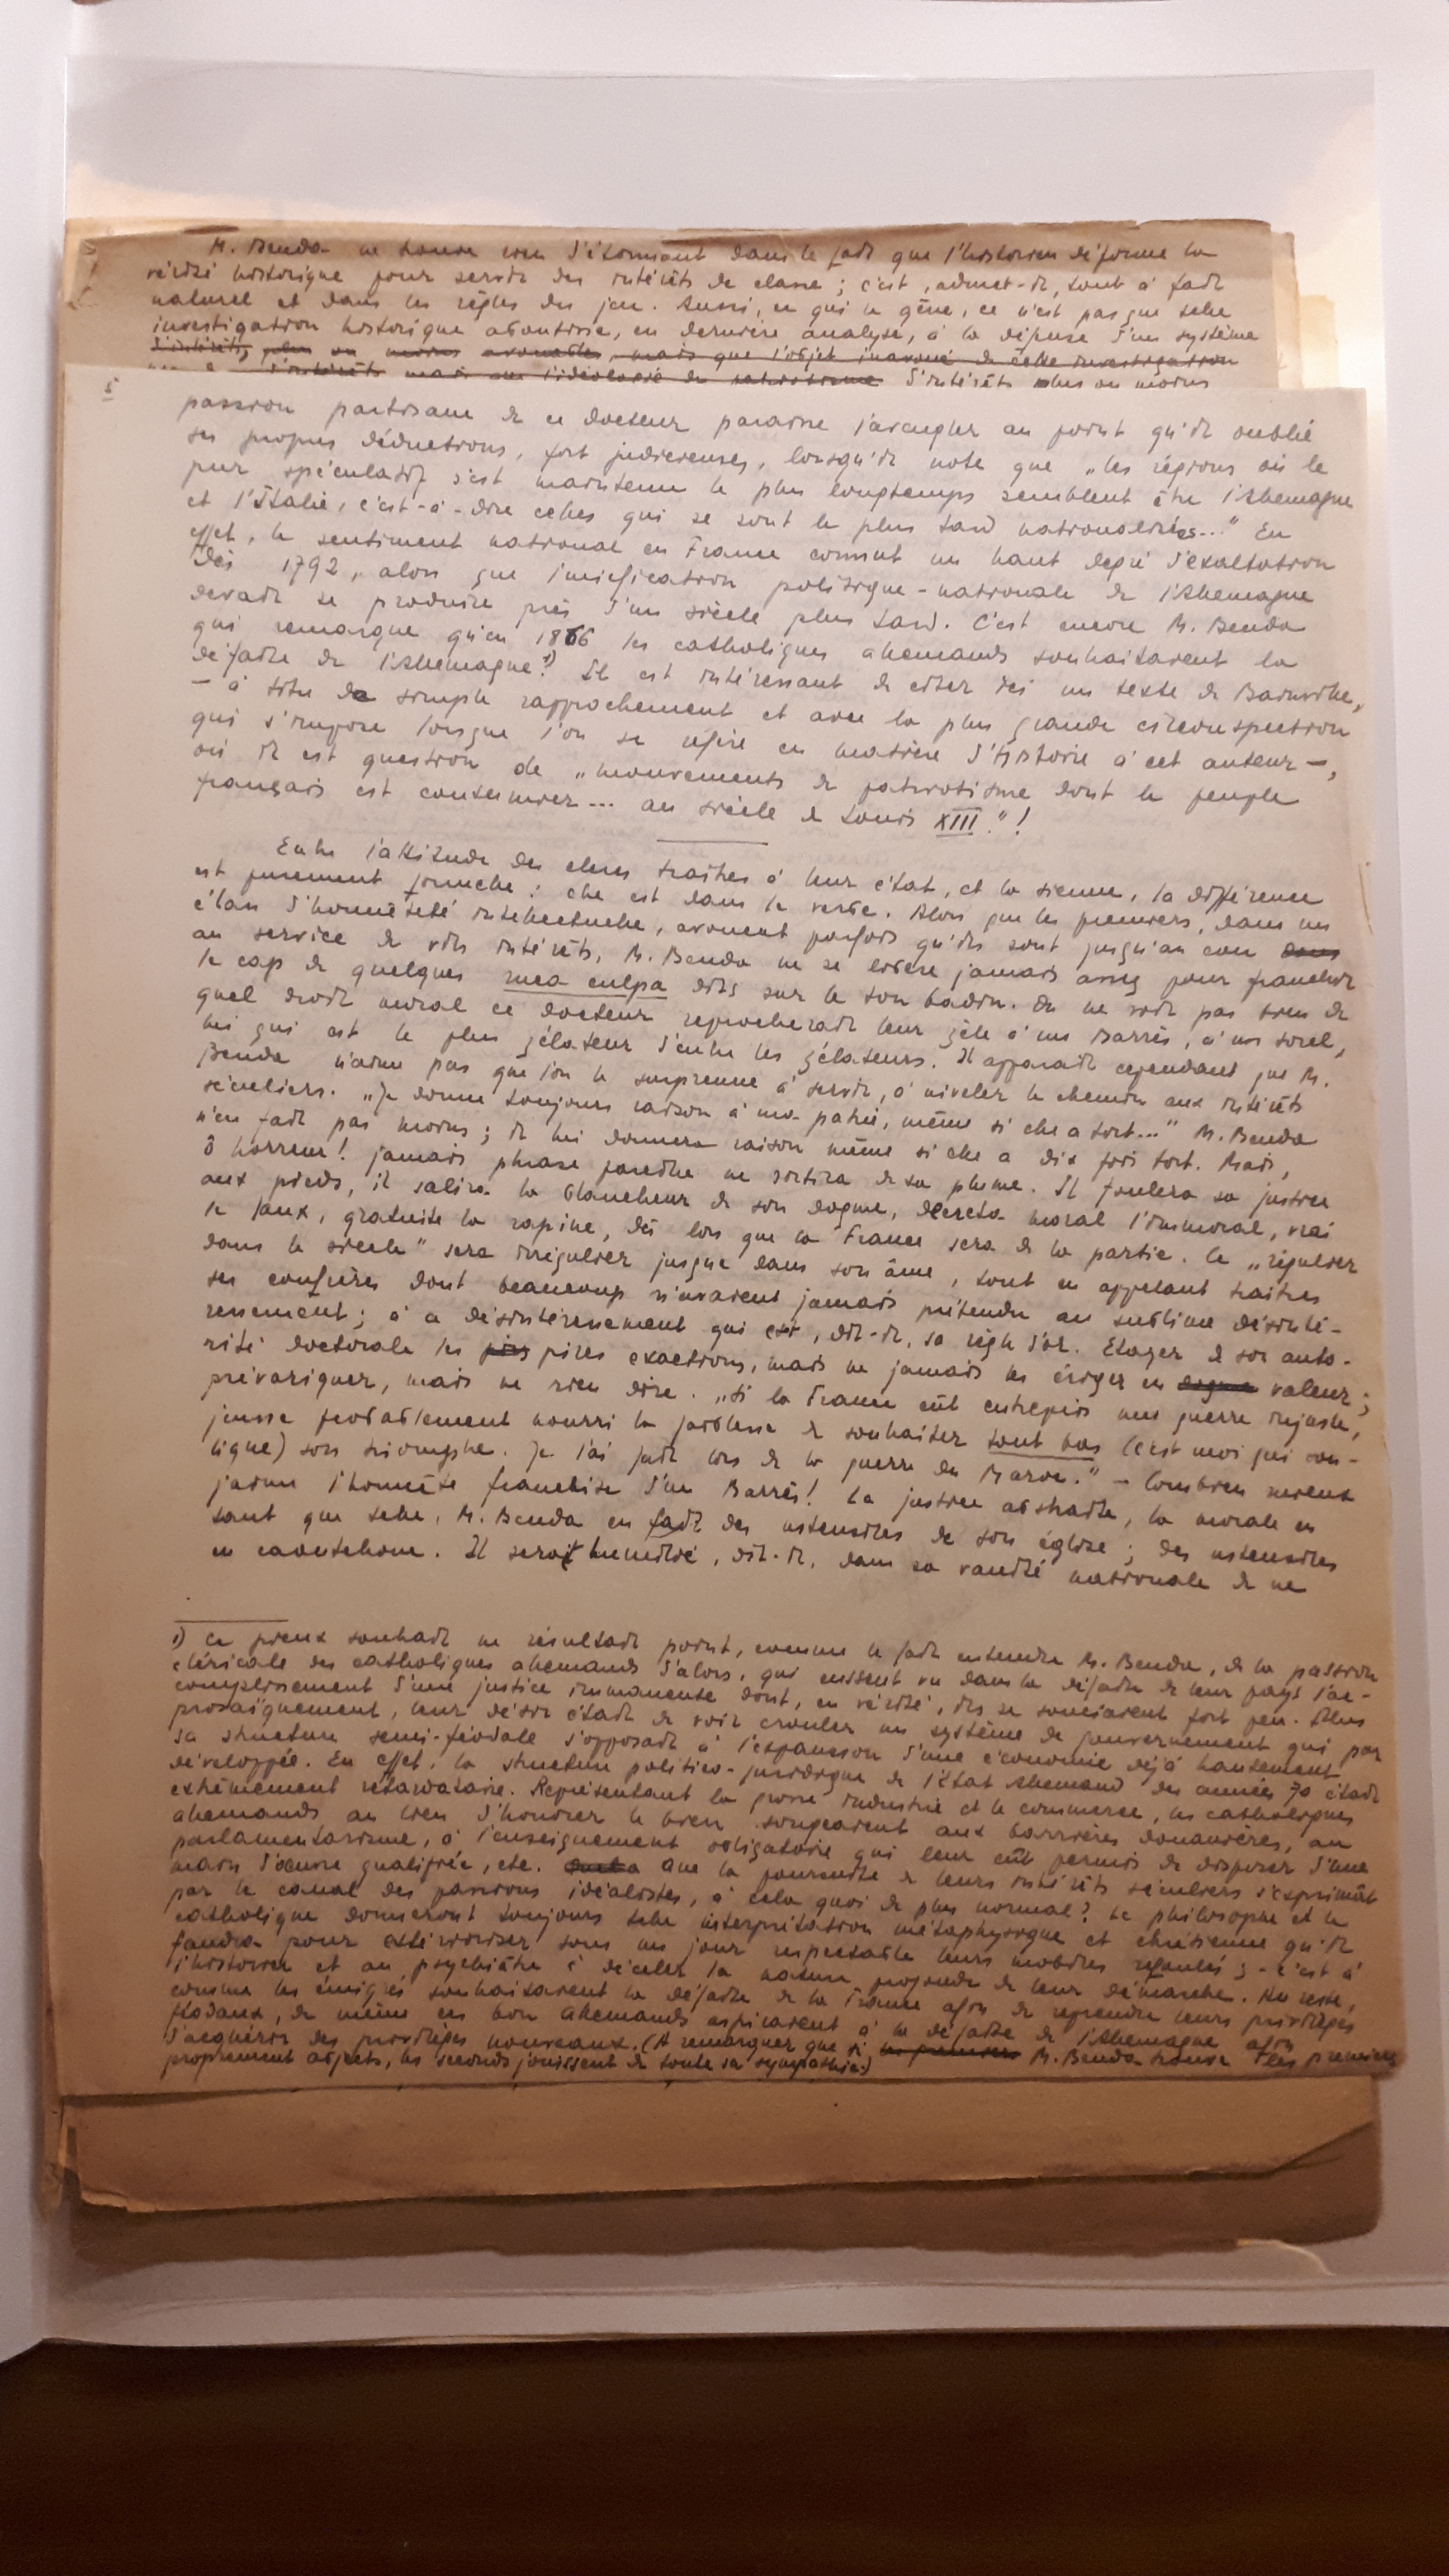 M. Benda ne trouve rien d'étonnant dans le fait que l'historien déforme la
vérité historique pour servir des intérêts de classe ; c'est, admet-il, tout à fait
naturel et dans les règles du jeu. Aussi, ce qui le gêne, ce n'est pas que telle
investigation historique aboutisse, en dernière analyse, à la défense d'un système
d'intérêts, plus ou moins avouables, mais que l'objet inavoué de cette investigation
d'intérêts mais que l'idéologie du patriotisme d'intérêts plus ou moins
5
passion partisane de ce docteur paraisse l'aveugler au point qu'il oublie
ses propres déductions, fort judicieuses, lorsqu'il note que „les régions où le
pur spéculatif s'est maintenu le plus longtemps semblent être l'Allemagne
et l'Italie, c'est-à-dire celles qui se sont le plus tard nationalisées..." En
effet, le sentiment national en France connut un haut degré d'exaltation
dès 1792, alors que l'unification politique-nationale de l'Allemagne
devait se produire près d'un siècle plus tard. C'est encore M. Benda
qui remarque qu'en 1866 les catholiques allemands souhaitaient la
défaite de l'Allemagne.1) Il est intéressant de citer ici un texte de Bainville,
— à titre de simple rapprochement et avec la plus grande circonspection
qui s'impose lorsque l'on se réfère en matière d'Histoire à cet auteur —,
où il est question de „mouvements de patriotisme dont le peuple
français est coutumier... au siècle de Louis XIII."!
Entre l'attitude des clercs traîtres à leur état, et la sienne, la différence
est purement formelle : elle est dans le verbe. Alors que les premiers, dans un
élan d'honnêteté intellectuelle, avouent parfois qu'ils sont jusqu'au cou dans
au service de vils intérêts, M. Benda ne se libère jamais assez pour franchir
le cap de quelques mea culpa dits sur le ton badin. On ne voit pas bien de
quel droit moral ce docteur reprocherait leur zèle à un Barrès, à un Sorel,
lui qui est le plus zélateur d'entre les zélateurs. Il apparaît cependant que M.
Benda n'aime pas que l'on le surprenne à servir, à niveler le chemin aux intérêts
séculiers. „Je donne toujours raison à ma patrie, même si elle a tort..." M. Benda
n'en fait pas moins ; il lui donnera raison même si elle a dix fois tort. Mais,
ô horreur ! jamais phrase pareille ne sortira de sa plume. Il foulera sa justice
aux pieds, il salira la blancheur de son dogme, décréta moral l'immoral, vrai
le faux, gratuite la rapine, dès lors que la France sera de la partie. Ce „régulier
dans le siècle" sera irrégulier jusque dans son âme, tout en appelant traîtres
ses confrères dont beaucoup n'avaient jamais prétendu au sublime désinté-
ressement ; à ce désintéressement qui est, dit-il, sa règle d'or. Etayer de son auto-
rité doctorale les pires pires exactions, mais ne jamais les ériger en dogme valeur ;
prévariquer, mais ne rien dire. „Si la France eût entrepris une guerre injuste,
j'eusse probablement nourri la faiblesse de souhaiter tout bas (c'est moi qui sou-
ligne) son triomphe. Je l'ai fait lors de la guerre du Maroc." — Combien mieux
j'aime l'honnête franchise d'un Barrès ! La justice abstraite, la morale en
tant que telle, M. Benda en fait des ustensiles de son église ; des ustensiles
en caoutchouc. Il serait humilié, dit-il, dans sa vanité nationale de ne
1) Ce pieux souhait ne résultait point, comme le fait entendre M. Benda, de la passion
cléricale des catholiques allemands d'alors, qui eussent vu dans la défaite de leur pays l'ac-
complissement d'une justice immanente dont, en vérité, ils se souciaient fort peu. Plus
prosaïquement, leur désir était de voir crouler un système de gouvernement qui par
sa structure semi-féodale s'opposait à l'expansion d'une économie déjà hautement
développée. En effet, la structure politico-juridique de l'état allemand des années 70 était
extrêmement retardataire. Représentant la grosse industrie et le commerce, les catholiques
allemands au lieu d'honorer le bien songeaient aux barrières douanières, au
parlamentarisme, à l'enseignement obligatoire qui leur eût permis de disposer d'une
main d'œuvre qualifiée, etc. Que la poursuite de leurs intérêts séculiers s'exprimât
par le canal des passions idéalistes, à cela quoi de plus normal ? Le philosophe et le
catholique donneront toujours telle interprétation métaphysique et chrétienne qu'il
faudra pour extérioriser sous un jour respectable leurs mobiles refoulés ; - c'est à
l'historien et au psychiâtre à déceler la nature profonde de leur démarche. Au reste,
comme les émigrés souhaitaient la défaite de la France afin de reprendre leurs privilèges
féodaux, de même ces bon Allemands aspiraient à la défaite de l'Allemagne afin
d'acquérir des privilèges nouveaux. (A remarquer que si les premiers M. Benda trouve les premiers
proprement abjects, les seconds jouissent de toute sa sympathie.)